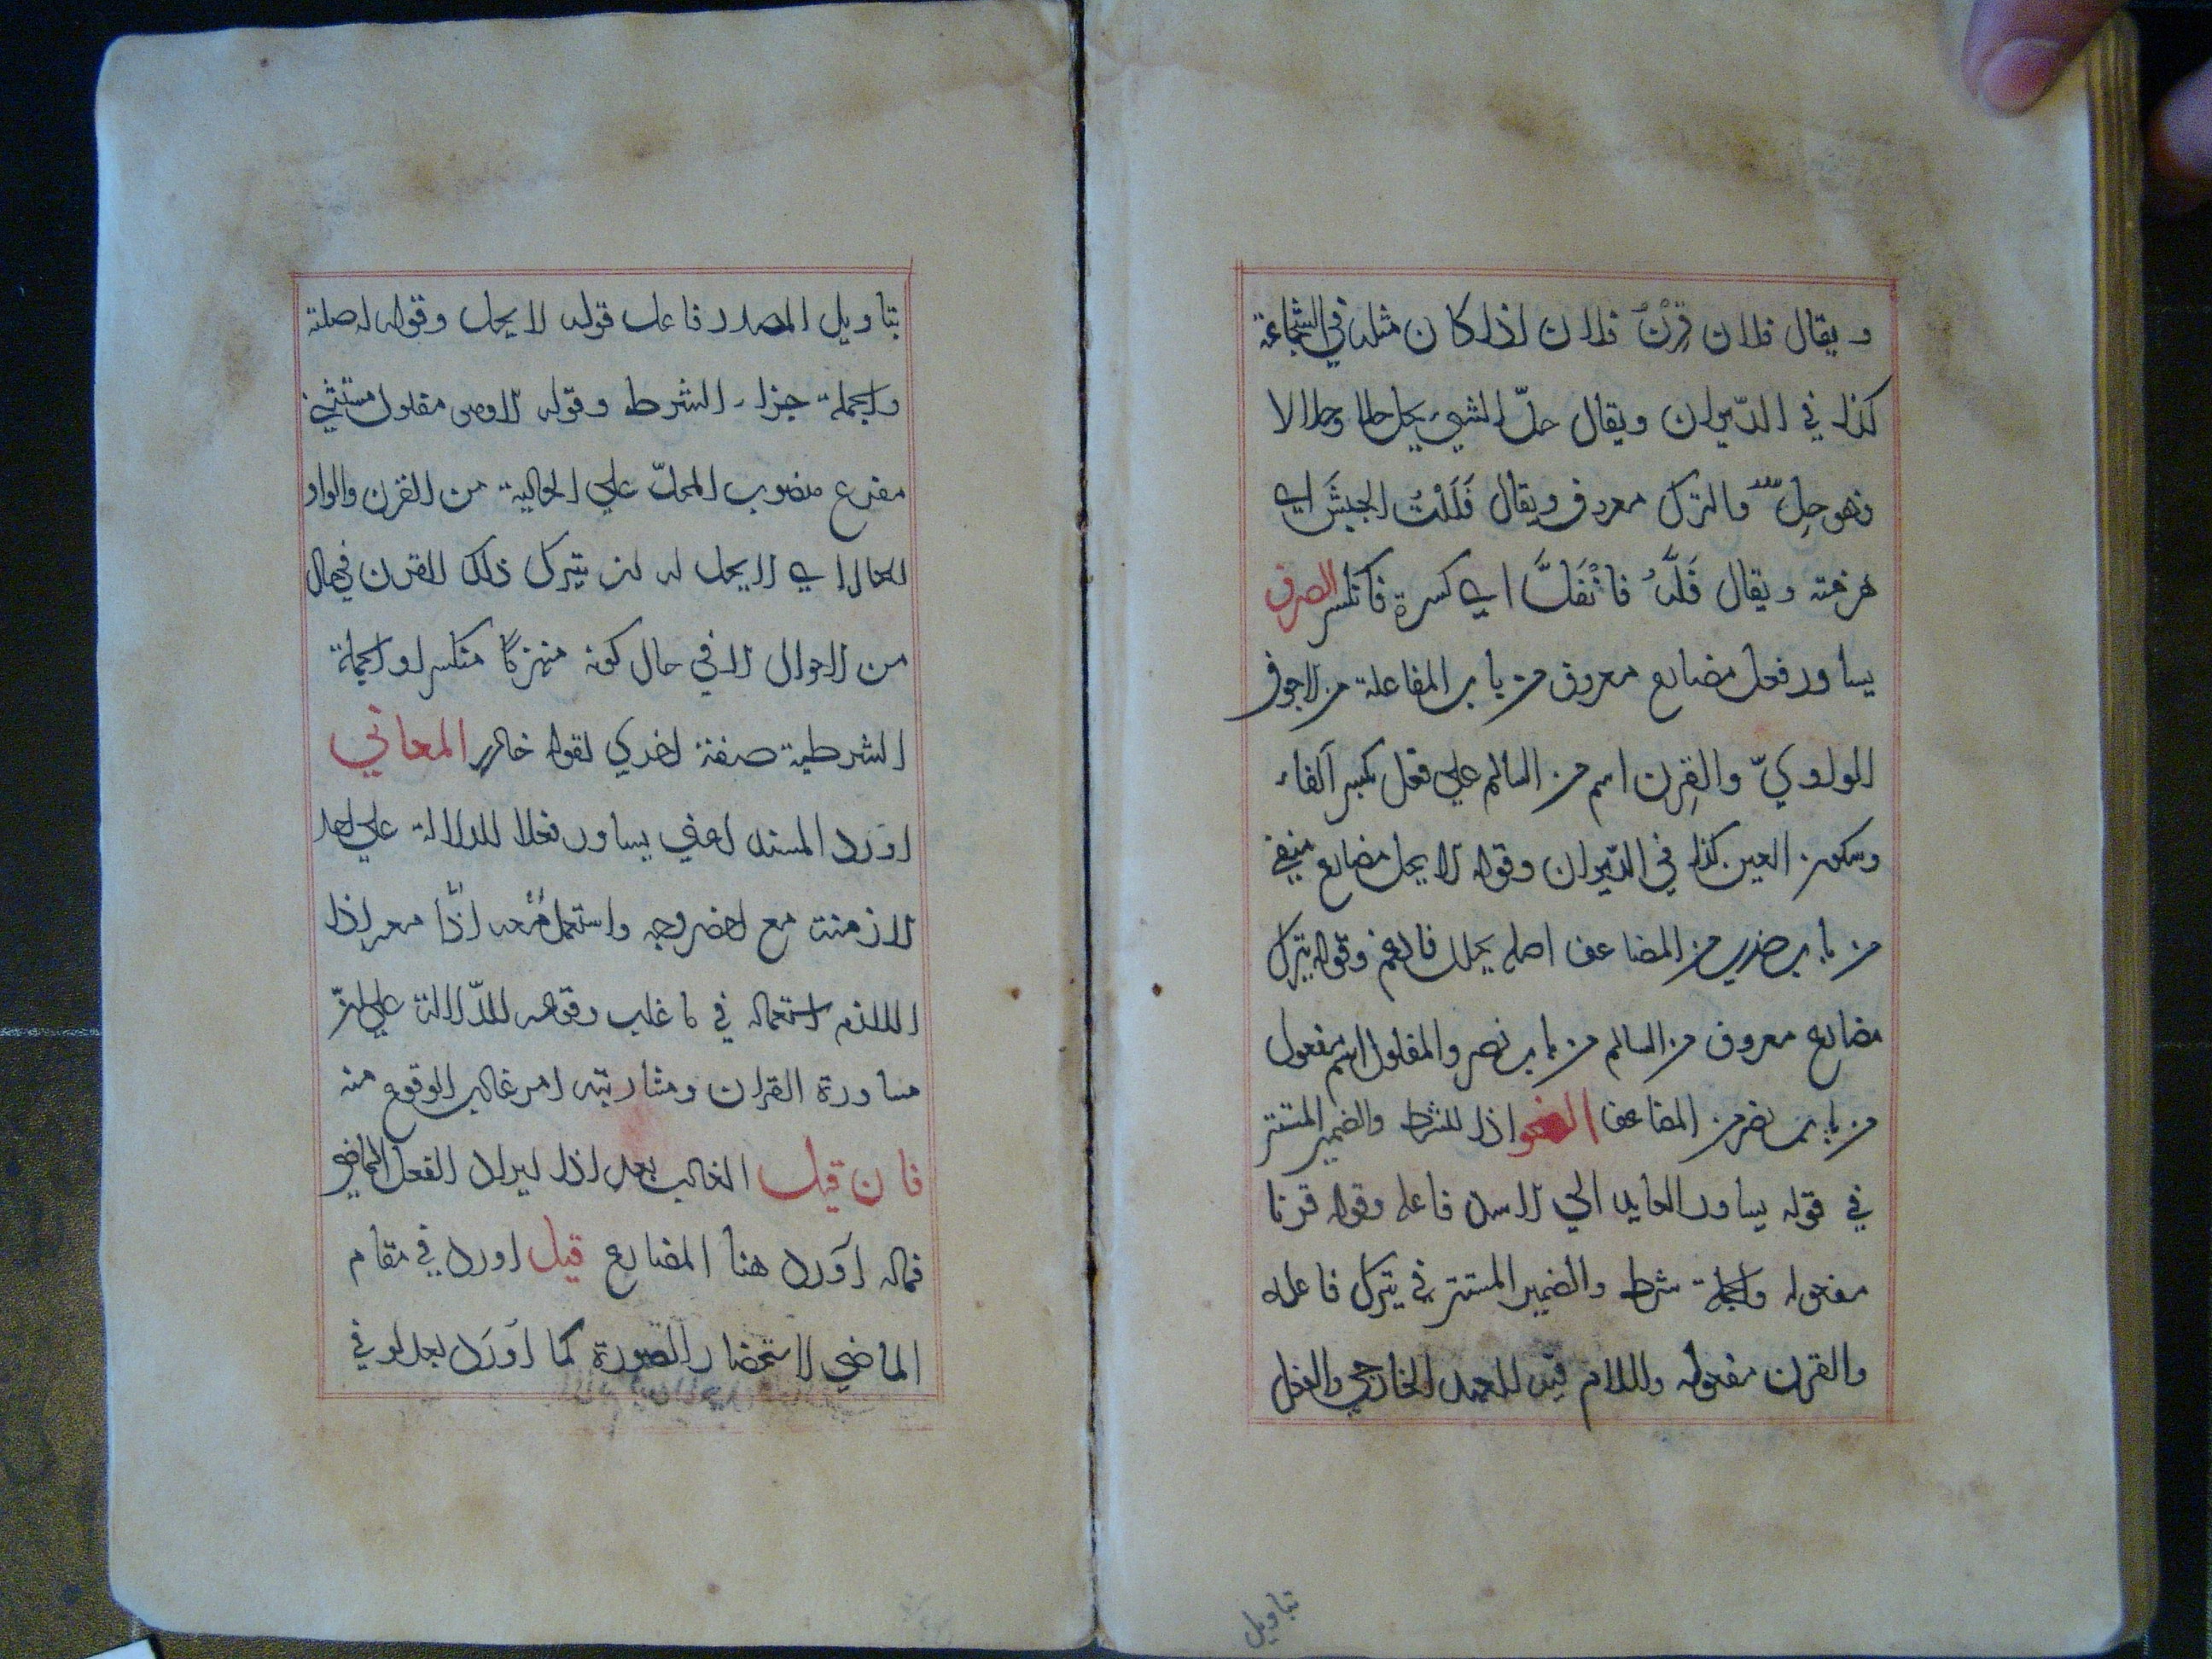 ويقال فلان قِرْنُ فلان اذا كان مثله في الشجاعة
كذا في الديوان ويقال حلّ الشيئ يحل حلا وحلالا
فهو حِلّ والترك معروف ويقال فَلَلْتُ الجيشَ اي
هزمته ويقال فَلَّهُ فانْفَلَّ اي كسرة فانكسر الصرف
يساور فعل مضارع معروف من باب المفاعلة من الاجوف
الواويّ والقِرن اسم من السالم علي فعل بكسر الفاء
وسكون العين كذا في الديوان وقوله لا يحل مضارع منفي
من باب ضرب من المضاعف اصله يحلل فادغم وقوله يترك
مضارع معروف من السالم من باب نصر والمفلول اسم مفعول
من باب نصر من المضاعف النحو اذا للشرط والضمير المستتر
في قوله يساور العايد الي الاسد فاعله وقوله قرنا
مفعوله والجملة شرط والضمير المستتر في يترك فاعله
والقرن مفعوله واللام فيه للعهد الخارجي والفعل
تباويل
بتاويل المصدر فاعل قوله لا يحل وقوله له صلته
والجملة جزاء الشرط وقوله الا وهو مفلول مستثني
مفرع منصوب المحلّ علي الحالية من القرن والواو
للحال اي لا يحل له ان يترك ذلك القرن في حال
من الاحوال الا في حال كونه منهزمًا منكسرا والجملة
الشرطية صفة اخري لقوله خادر المعاني
اورد المسند اعني يساور فعلا للدلالة علي احد
الازمنة مع اخصر وجه واستعمل معه اذا مع اذا
اللازم استعماله في ما غلب وقوعه للدّلالة علي انّ
مساورة القران ومثاربته امر غالب الوقوع منه
فان قيل الغالب بعد اذا ايراد الفعل الماضي
فماله اورد هنا المضارع قيل اورد في مقام
الماضي لاستحضار الصورة كما اورد بعد لو في